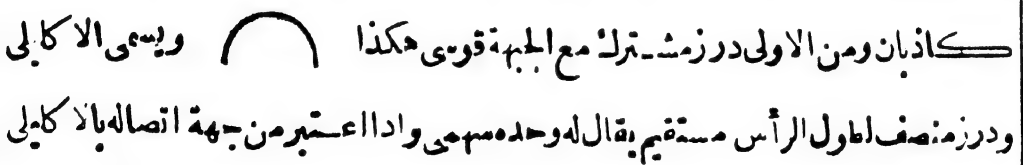 كاذبان ومن الاولى درز مشترك مع الجبهة قوسى هكذا ويسمى الاكليلى
ودرز منصف لطول الرأس مستقيم يقال له وحده سهمى واذا اعتبر من جهة اتصاله بالاكليلى